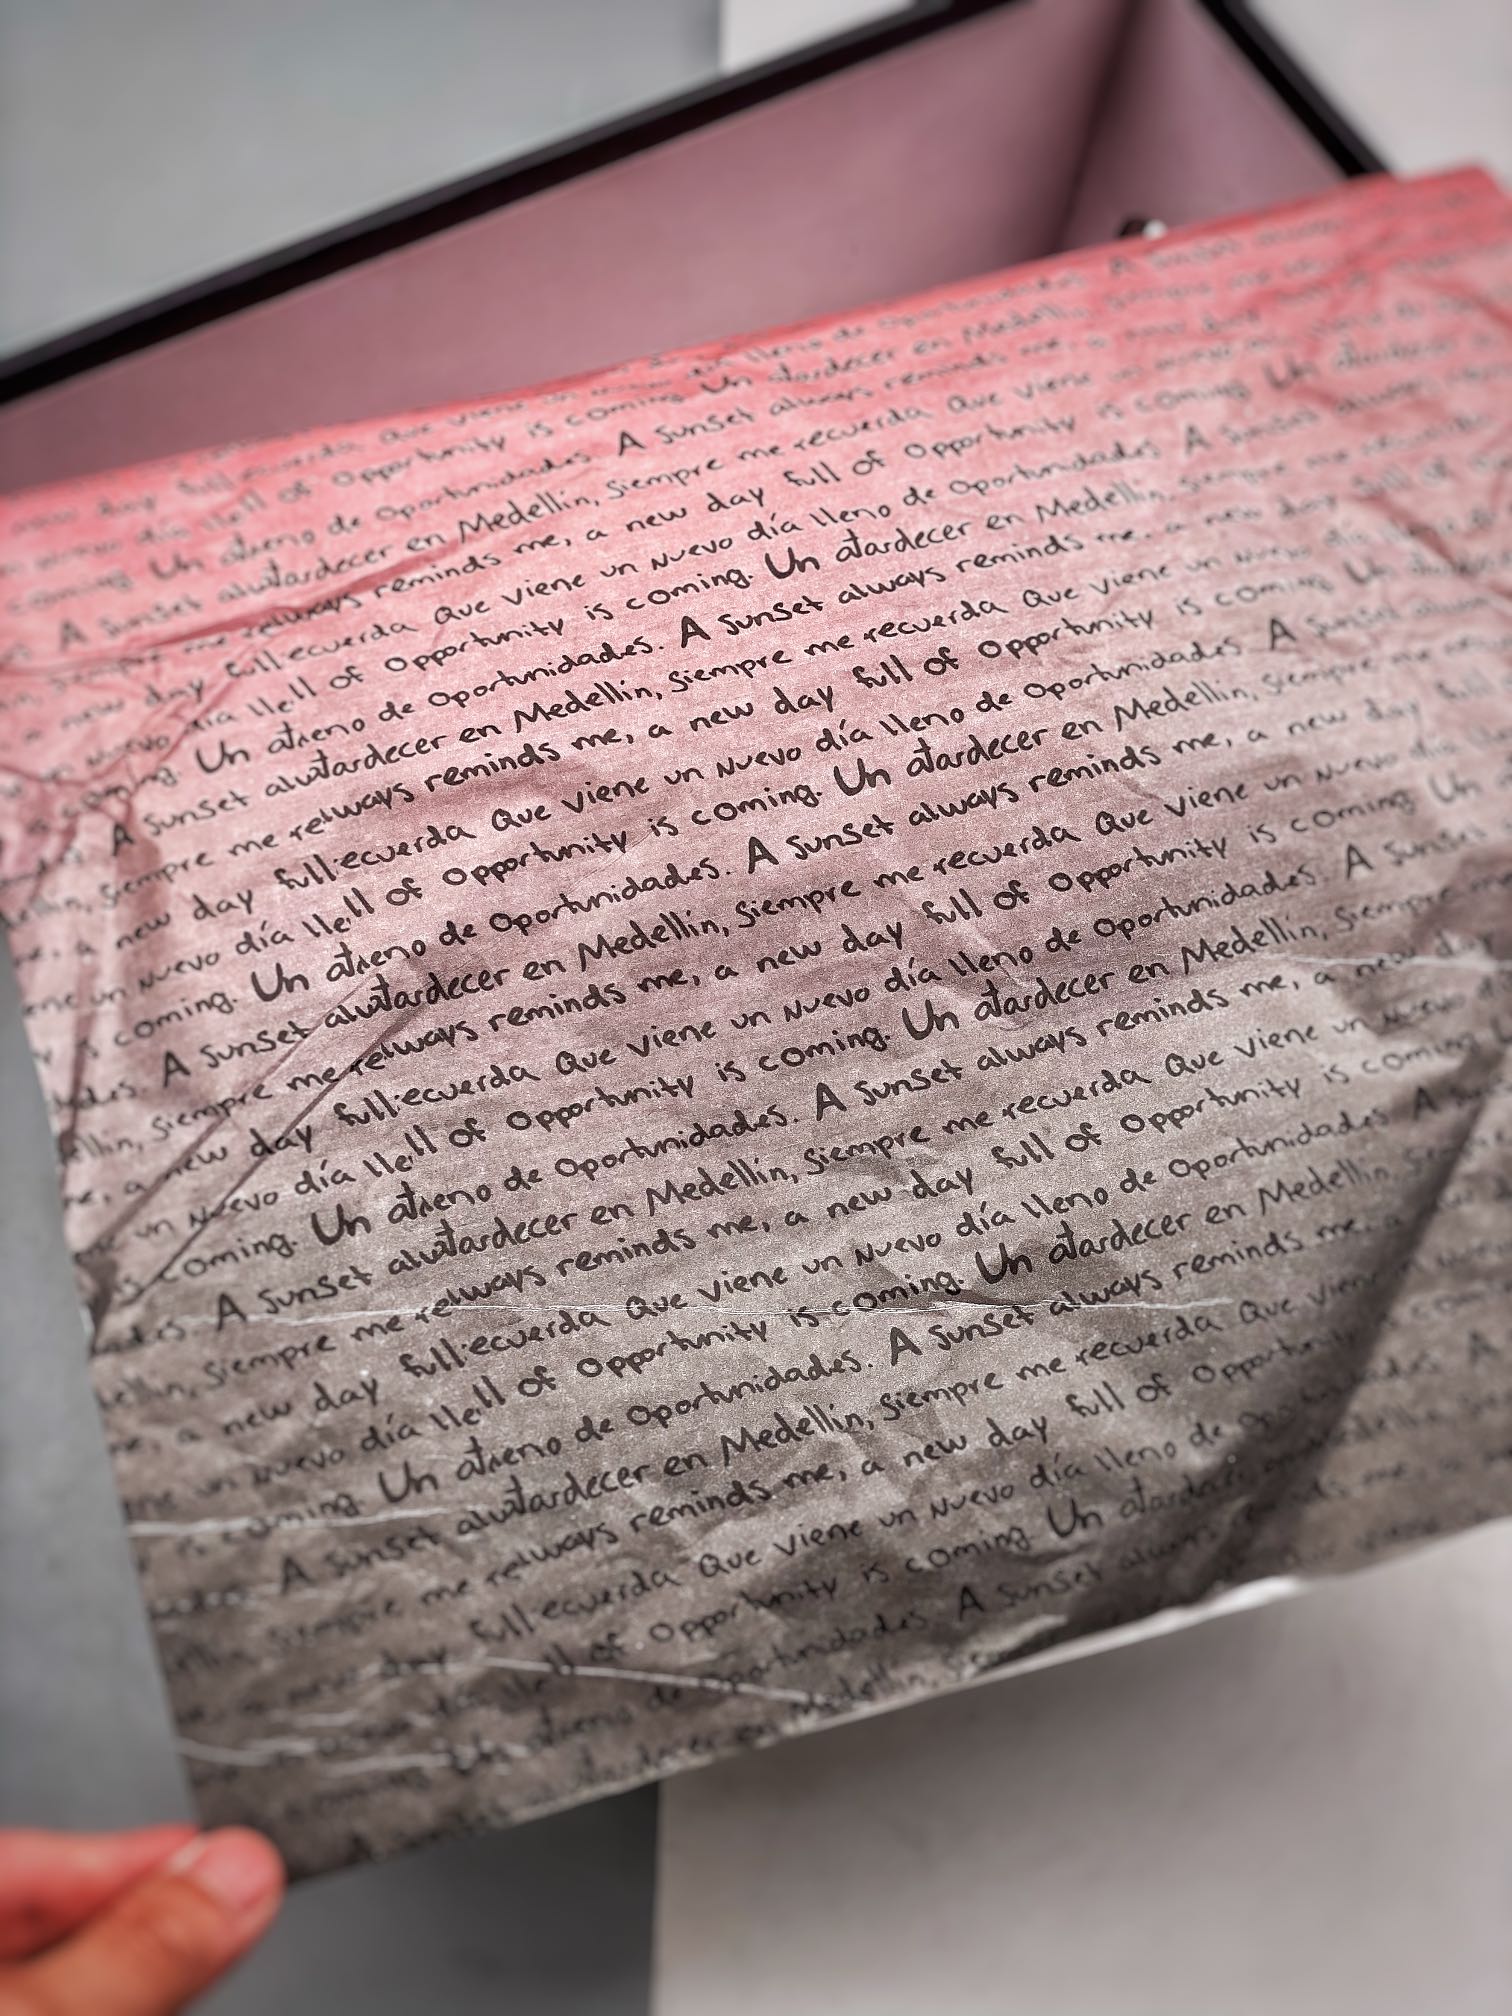 Opportunity is coming. Un atardecer en Medellín,
Un atreno de Oportunidades. A sunset always reminds me, a new day
A sunset alwtardecer en Medellín, Siempre me recuerda Que viene
me relways reminds me, a new day full of Opportunity is coming. Un atardecer
a new day fullecuerda Que viene un nuevo día lleno de Oportunidades. A sunset always
nuevo día llell of Opportunity is coming. Un atardecer en Medellín, siempre me recuerda
coming. Un atreno de Oportunidades. A sunset always reminds me, a new day full of
A sunset alwtardecer en Medellín, Siempre me recuerda Que viene un nuevo día
Siempre me relways reminds me, a new day full of Opportunity is coming. Un
a new day fullecuerda Que viene un nuevo día lleno de Oportunidades. A sunset
un nuevo día llell of Opportunity is coming. Un atardecer en Medellín, Siempre me
is coming. Un atreno de Oportunidades. A sunset always reminds me, a new day full
A sunset alwtardecer en Medellín, Siempre me recuerda Que viene un nuevo día
Siempre me relways reminds me, a new day full of Opportunity is coming. Un
a new day fullecuerda Que viene un nuevo día lleno de Oportunidades. A sunset
un nuevo día llell of Opportunity is coming. Un atardecer en Medellín, Siempre
coming. Un atreno de Oportunidades. A sunset always reminds me, a new day
A sunset alwtardecer en Medellín, Siempre me recuerda Que viene un nuevo
Siempre me relways reminds me, a new day full of Opportunity is coming.
a new day fullecuerda Que viene un nuevo día lleno de Oportunidades. A
un nuevo día llell of Opportunity is coming. Un atardecer en Medellín,
is coming. Un atreno de Oportunidades. A sunset always reminds me, a
A sunset alwtardecer en Medellín, Siempre me recuerda Que viene
Siempre me relways reminds me, a new day full of Opportunity
a new day fullecuerda Que viene un nuevo día lleno de
of Opportunity is coming. Un atardecer
Oportunidades. A sunset always
en Medellín,